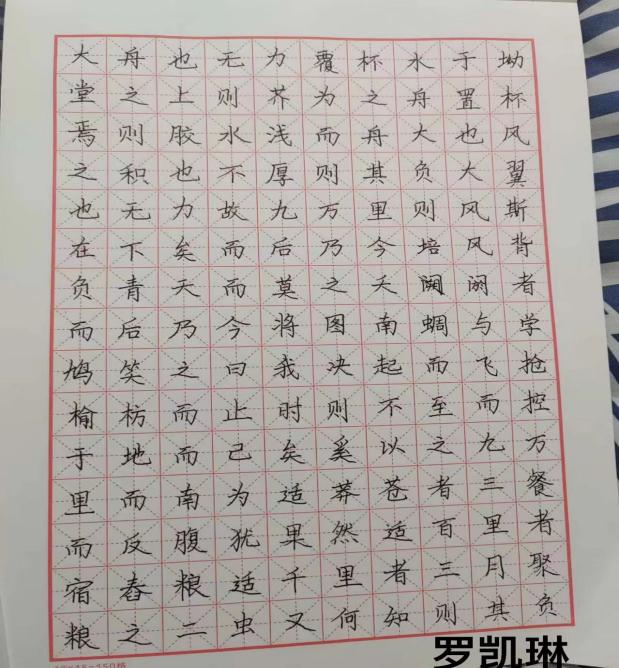 大舟也无力覆杯水于坳
堂之上则芥为之舟置杯
焉则胶水浅而舟大也风
之积也不厚则其负大翼
也无力故九万里则风斯
在下矣而后乃今培风背
负青天而莫之夭阏阏者
而后乃今将图南蜩与学
鸠笑之曰我决起而飞抢
榆枋而止时则不至而控
于地而已矣奚以之九万
里而南为适莽苍者三餐
而反腹犹果然适百里者
宿舂粮适千里者三月聚
粮之二虫又何知则其负
罗凯琳